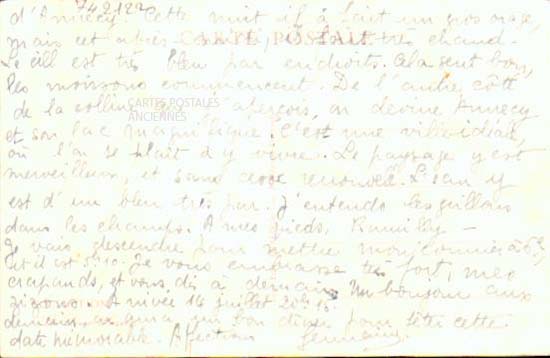 742122
d'Annecy. Cette nuit il a fait un gros orage,
mais cet après très chaud.
CARTE POSTALE
Le ciel est très bleu par endroits. Cela sent bon,
les moissons commencent. De l'autre côté
de la colline j'aperçois, on devine Annecy
CARTES POSTALES
ANCIENNES
et son lac magnifique. C'est une ville idéale,
où l'on se plaît d'y vivre. Le paysage y est
merveilleux, et sans cesse renouvelé. L'eau y
est d'un bleu très pur. J'entends les grillons
dans les champs. A mes pieds, Rumilly –
Je vais descendre pour mettre mon courrier à 6h,
il est 5h10. Je vous embrasse très fort, mes
crapauds, et vous dis à demain. Un bonjour aux
Arrivée 14 juillet 20h15.
demain, un bon dîner pour fêter cette
date mémorable. Affections